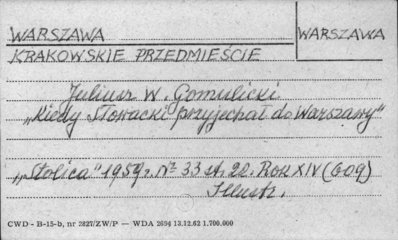 WARSZAWA WARSZAWA
KRAKOWSKIE PRZEDMIEŚCIE
Juliusz W. Gomulicki
„Kiedy Słowacki przyjechał do Warszawy"
„Stolica" 1959r. Nr 33 st. 22. Rok XIV (609)
Ilustr.
CWD - B-15-b, nr 2827/ZW/P — WDA 2694 13.12.62 1.700.000